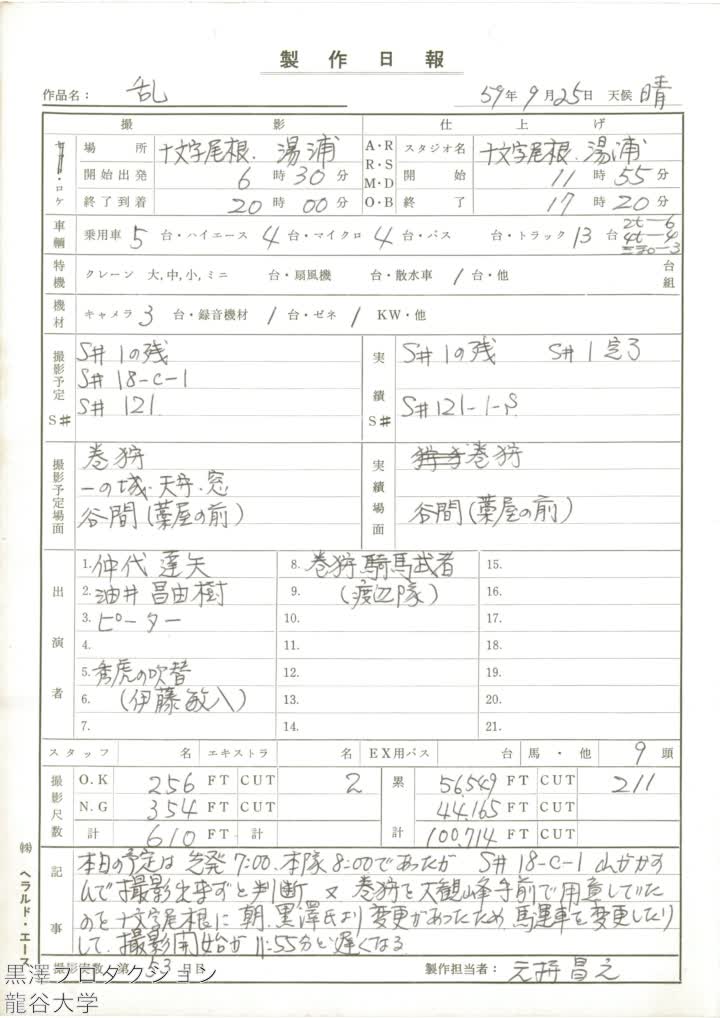 製作日報
作品名: 乱 59年9月25日 天候 晴
撮影 仕上げ
・ロケ 場所 十文字尾根. 湯浦 A・R R・S M・D O・B スタジオ名 十文字尾根. 湯浦
開始出発 6時30分 開始 11 55分
終了到着 20時00分 終了 17時20分
車輌 乗用車 5台・ハイエース 4台・マイクロ 4台・バス 台・トラック 13台 2t-6 4t-4
特機 クレーン 大,中,小,ミニ 台・扇風機 台・散水車 1台・他 台組
機材 キャメラ 3台・録音機材 1台・ゼネ 1 KW・他
撮影予定 S# S#1の残 実績 S# S#1の残 S#1完了
S#18-C-1
S#121 S#121-1-
撮影予定場面 巻狩 実績場面 巻狩
一の城.天守.窓
谷間(藁屋の前) 谷間(藁屋の前)
出演者
1. 仲代達矢 8. 巻狩騎馬武者 15.
2. 油井昌由樹 9. (渡辺隊) 16.
3. ピーター 10. 17.
4. 11. 18.
5. 秀虎の吹替 12. 19.
6. (伊藤敏八) 13. 20.
7. 14. 21.
スタッフ 名 エキストラ 名 EX用バス 台 馬・他 9頭
撮影尺数 O.K 256 FT CUT 2 累計 56,549 FT CUT 211
N.G 354 FT CUT 44,165 FT CUT
計 610 FT 計 100,714 FT CUT
記事 本日の予定は先発7:00.本隊8:00であったが S#18-C-1 山がかす
んで撮影出来ずと判断 又 巻狩を大観峰手前で用意していた
のを十文字尾根に朝.黒澤氏より変更があったため.馬運車を変更したり
して.撮影開始が11:55分と遅くなる
撮影実数 第53日目 製作担当者: 元持昌之
㈱ヘラルド・エース
黒澤プロダクション
龍谷大学